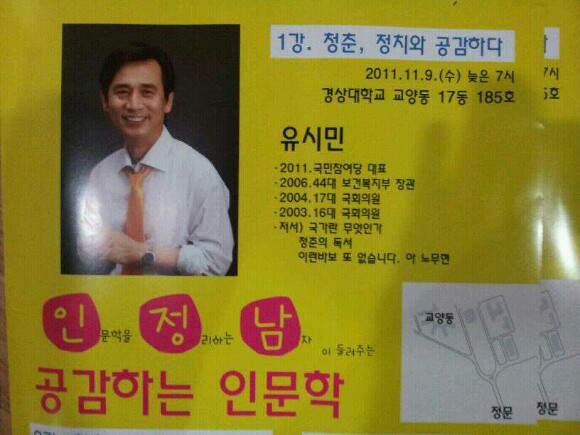 1강. 청춘, 정치와 공감하다
2011.11.9.(수) 늦은 7시
7시
경상대학교 교양동 17동 185호
5호
유시민
-2011.국민참여당 대표
-2006.44대 보건복지부 장관
-2004.17대 국회의원
-2003.16대 국회의원
-저서) 국가란 무엇인가
청춘의 독서
이런바보 또 없습니다. 아 노무현
인문학을 정리하는 남자 이 들려주는
공감하는 인문학
교양동
정문
정문